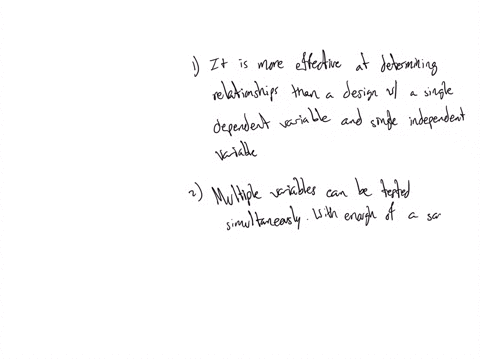 1) It is more effective at determining
relationships than a design w/ a single
dependent variable and single independent
variable
2) Multiple variables can be tested
simultaneously. With enough of a sa